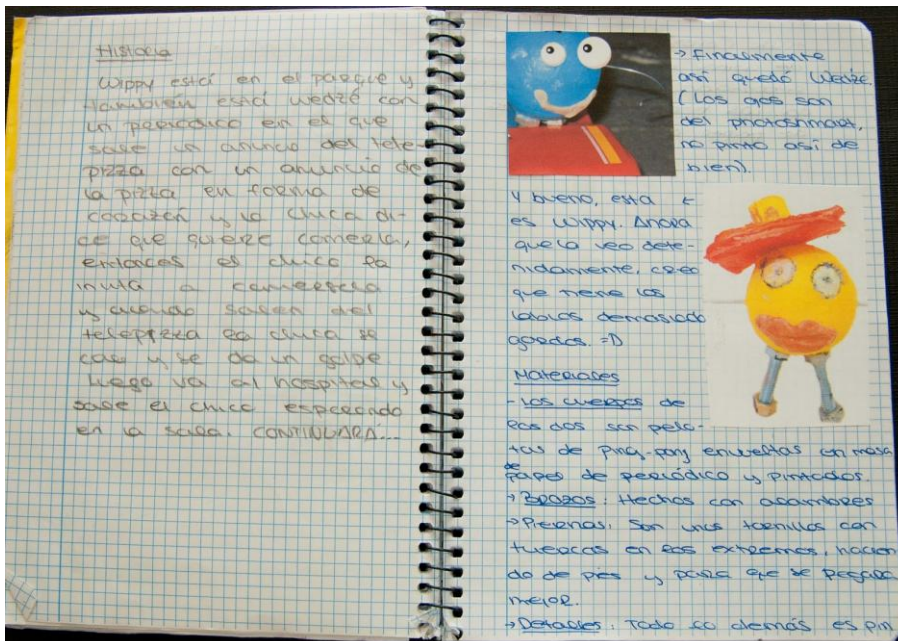 Historia
Wippy está en el parque y
también está Wedzé con
un periódico en el que
sale un anuncio del tele-
pizza con un anuncio de
la pizza en forma de
corazón y la chica di-
ce que quiere comerla,
entonces el chico la
invita a comérsela
y cuando salen del
telepizza la chica se
cae y se da un golpe
Luego va al hospital y
sale el chico esperando
en la sala. CONTINUARÁ...
→ Finalmente
así quedó Wedzé.
(Los ojos son
del photoshmart,
no pinto así de
bien).
Y bueno, esta ←
es Wippy. Ahora
que la veo dete-
nidamente, creo
que tiene los
labios demasiado
gordos. =D
Materiales
- Los cuerpos de
los dos son pelo-
tas de ping-pong envueltas en masa
de papel de periódico y pintados.
→ Brazos: Hechos con alambres
→ Piernas: Son unos tornillos con
tuercas en los extremos, hacien
do de pies y para que se pegara
mejor.
→ Detalles: Todo lo demás es pin